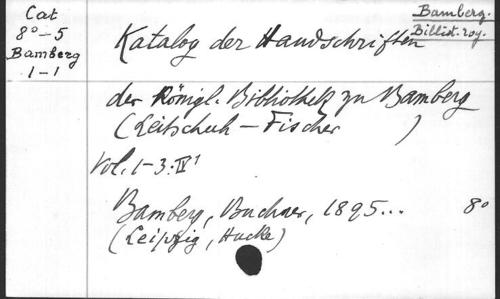 Cat
8°-5
Bamberg
1-1
Bamberg.
Bibliot. roy.
Katalog der Handschriften
der Königl. Bibliothek zu Bamberg
(Leitschuh - Fischer )
Vol. 1-3:IV¹
Bamberg, Buchner, 1895... 8°
(Leipzig, Hucke)